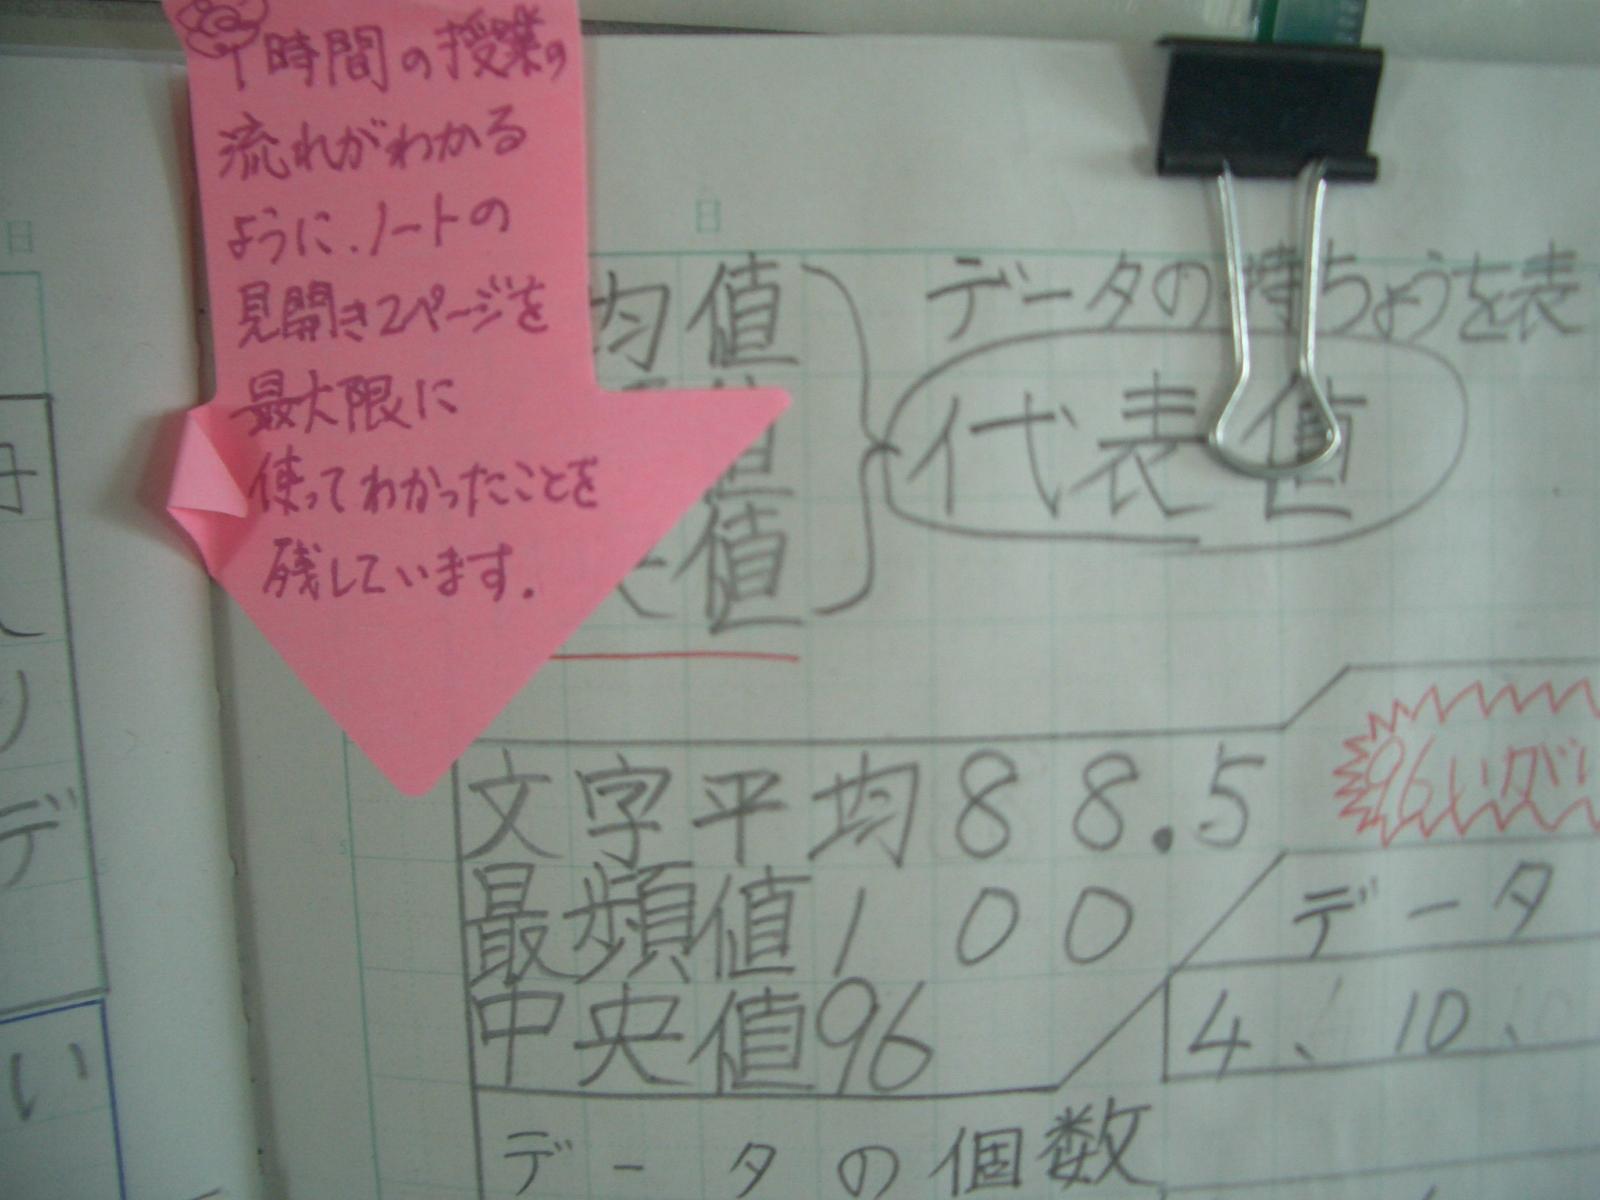 1時間の授業の
流れがわかる
ように、ノートの
見開き2ページを
最大限に
使ってわかったことを
残しています。
日
日
均値
データの特ちょうを表
代表値
値
値
文字平均88.5
96いがい
最頻値100
データ
中央値96
4、10、
データの個数
デ
い